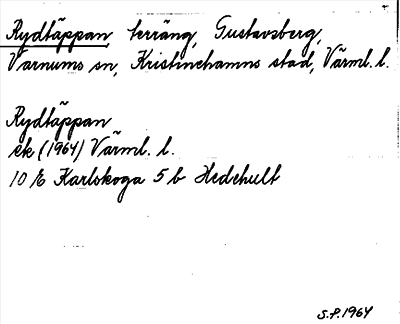 Rydtäppan, terräng, Gustavsberg,
Varnums sn, Kristinehamns stad, Värml. l.
Rydtäppan
ek (1964) Värml. l.
10 E Karlskoga 5 b Hedehult
S.P. 1964